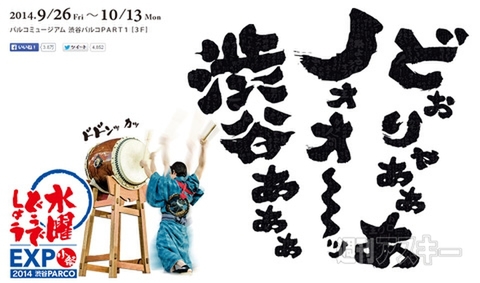 2014.9/26 Fri ～ 10/13 Mon
パルコミュージアム 渋谷パルコPART1 [3F]
いいね！
ツイート
どぉりゃぁぁぁ
ノォォ〜〜ッ
渋谷ぁぁぁ
ドドンッ カッ
水曜
どうで
しょう
EXPO
小祭
2014 渋谷PARCO
週刊アスキー